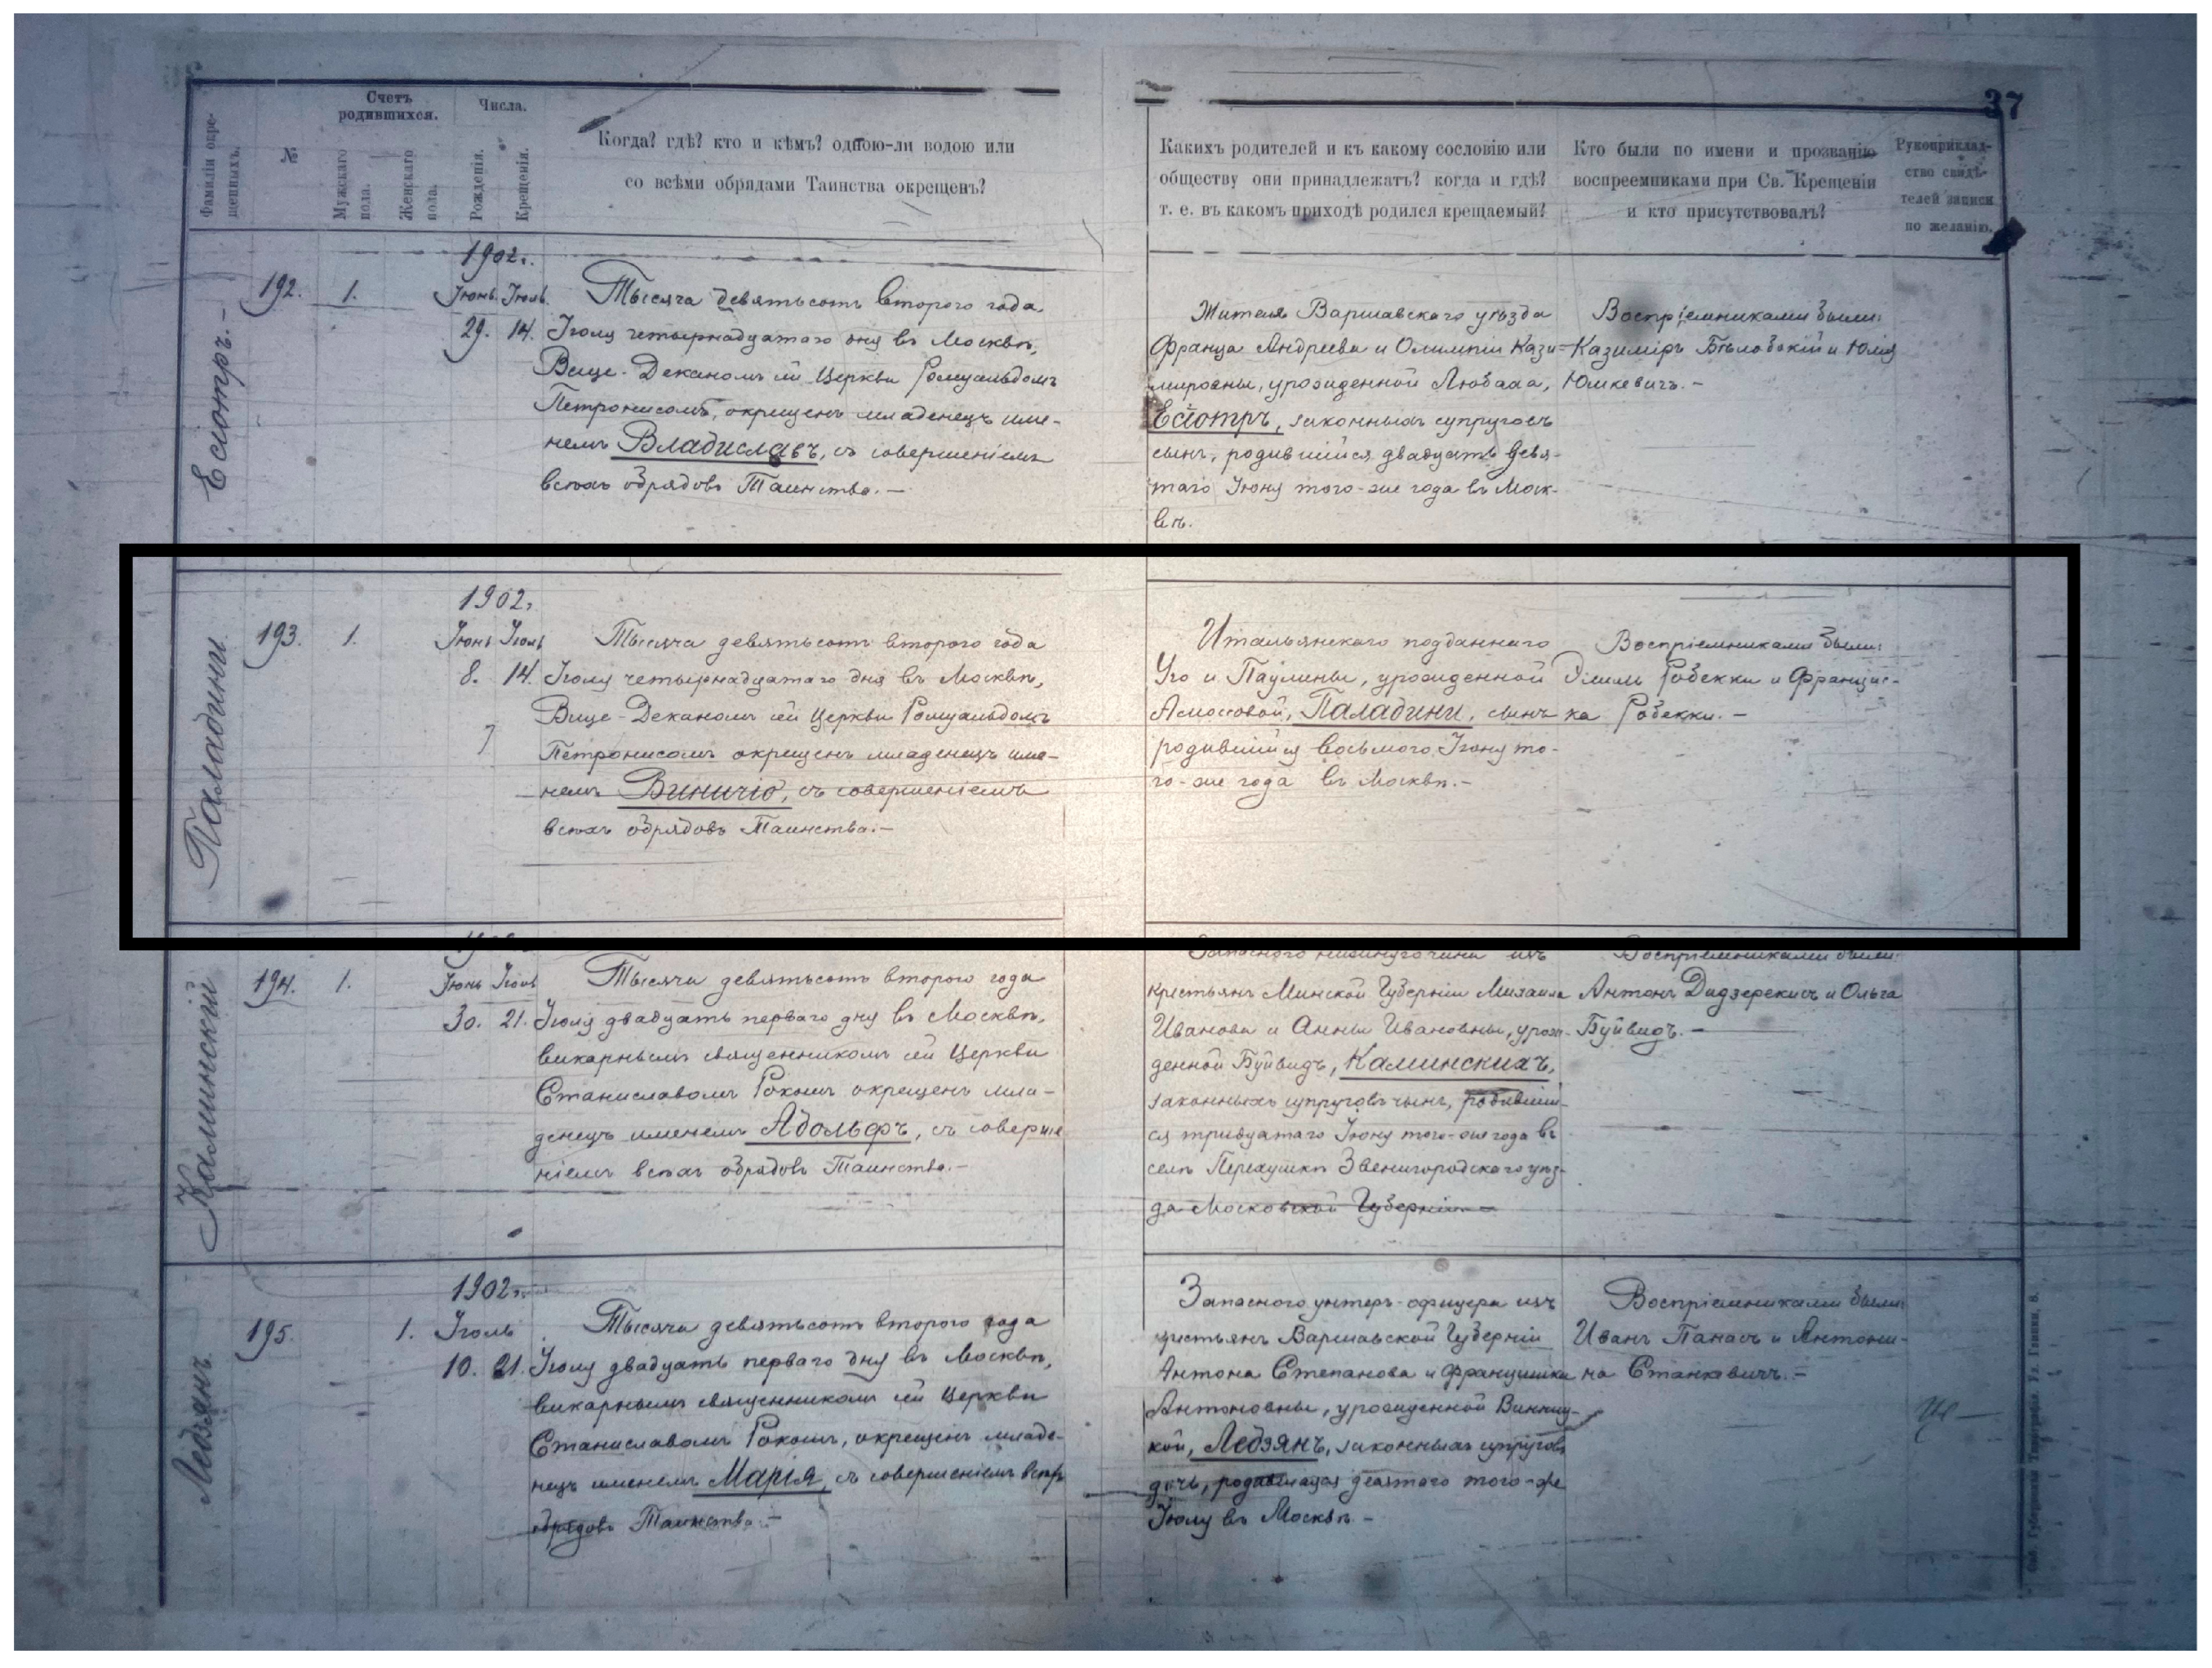 37
Фамиліи окре-
щенныхъ.
№
Счетъ
родившихся.
Мужскаго
пола.
Женскаго
пола.
Числа.
Рожденія.
Крещенія.
Когда? гдѣ? кто и кѣмъ? одною-ли водою или
со всѣми обрядами Таинства окрещенъ?
Какихъ родителей и къ какому сословію или
обществу они принадлежатъ? когда и гдѣ?
т. е. въ какомъ приходѣ родился крещаемый?
Кто были по имени и прозванію
воспреемниками при Св. Крещеніи
и кто присутствовалъ?
Рукоприклад-
ство свидѣ-
телей записи
по желанію.
Есіотръ.-
192.
1.
1902г.
Іюнь Іюль
29. 14.
Тысяча девятьсотъ второго года
Іюля четырнадцатаго дня въ Москвѣ,
Вице-Деканомъ сей Церкви Ромуальдомъ
Петронисомъ, окрещенъ младенецъ име-
немъ Владиславъ, съ совершеніемъ
всѣхъ обрядовъ Таинства.-
Жителя Варшавскаго уѣзда
Франца Андреева и Олимпіи Кази-
мировны, урожденной Любава,
Есіотръ, законныхъ супруговъ
сынъ, родившійся двадцать девя-
таго Іюня того-же года въ Моск-
вѣ.
Воспріемниками были:
Казиміръ Бѣлобокій и Юлія
Юшкевичъ.-
Паладини
193.
1.
1902г.
Іюнь Іюль
8. 14.
Тысяча девятьсотъ второго года
Іюля четырнадцатаго дня въ Москвѣ,
Вице-Деканомъ сей Церкви Ромуальдомъ
Петронисомъ окрещенъ младенецъ име-
немъ Виничіо, съ совершеніемъ
всѣхъ обрядовъ Таинства.-
Итальянскаго подданнаго
Уго и Паулины, урожденной
Амосовой, Паладини, сынъ
родившійся восьмого Іюня то-
го-же года въ Москвѣ.-
Воспріемниками были:
Робекки и Францис-
ка Робекки.-
Калминскій
194.
1.
Іюнь Іюль
30. 21.
Тысяча девятьсотъ второго года
Іюля двадцать перваго дня въ Москвѣ,
викарнымъ священникомъ сей Церкви
Станиславомъ Рокошъ окрещенъ мла-
денецъ именемъ Адольфъ, съ соверше
ніемъ всѣхъ обрядовъ Таинства.-
Запаснаго нижняго чина изъ
крестьянъ Минской Губерніи Михаила
Иванова и Анны Ивановны, урож-
денной Буйвидъ, Калминскихъ,
законныхъ супруговъ сынъ, родивший-
ся тридцатаго Іюня того-же года въ
селѣ Перхушки Звенигородскаго уѣз-
да Московской Губерніи.-
Воспріемниками были:
Антонъ Дидзерекисъ и Ольга
Буйвидъ.-
Ледзянъ
195.
1.
1902г.
Іюль
10. 21.
Тысяча девятьсотъ второго года
Іюля двадцать перваго дня въ Москвѣ,
викарнымъ священникомъ сей Церкви
Станиславомъ Рокошъ, окрещенъ младе-
нецъ именемъ Марія, съ совершеніемъ всѣхъ
обрядовъ Таинства.-
Запаснаго унтеръ-офицера изъ
крестьянъ Варшавской Губерніи
Антона Степанова и Францишки
Антоновны, урожденной Винниц-
кой, Ледзянъ, законныхъ супруговъ
дочь, родившаяся десятаго того-же
Іюля въ Москвѣ.-
Воспріемниками были:
Иванъ Панасъ и Антони-
на Станкевичъ.-